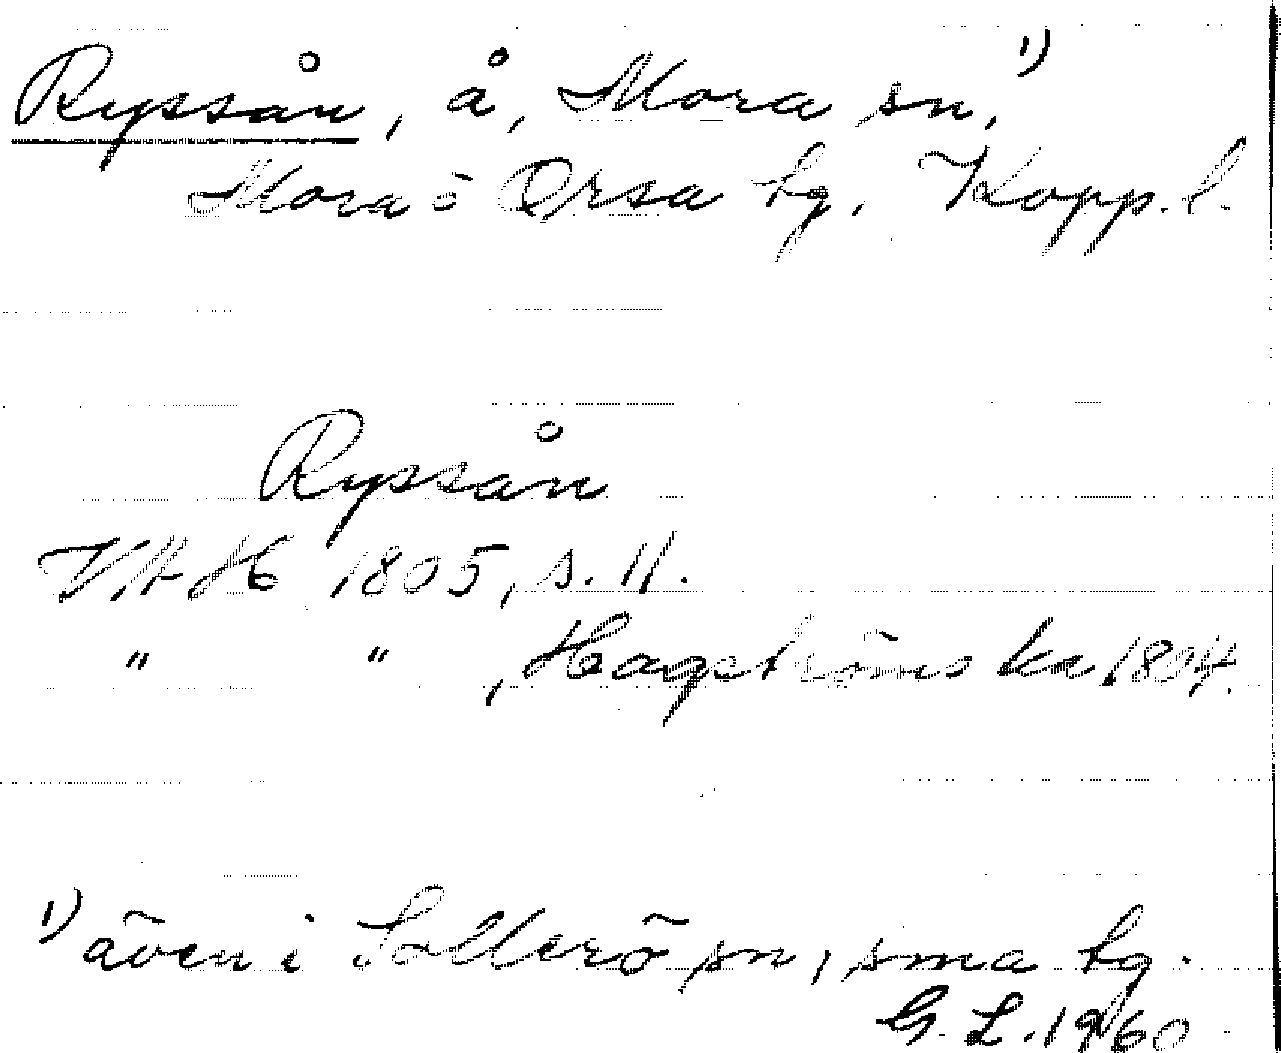 Ryssån, å, Mora sn, 1)
Mora o Orsa tg, Kopp. l.
Ryssån
VAH 1805, s. 11.
" " , Hagströms ka 1804.
1) även i Sollerö sn, sma tg.
G. L. 1960